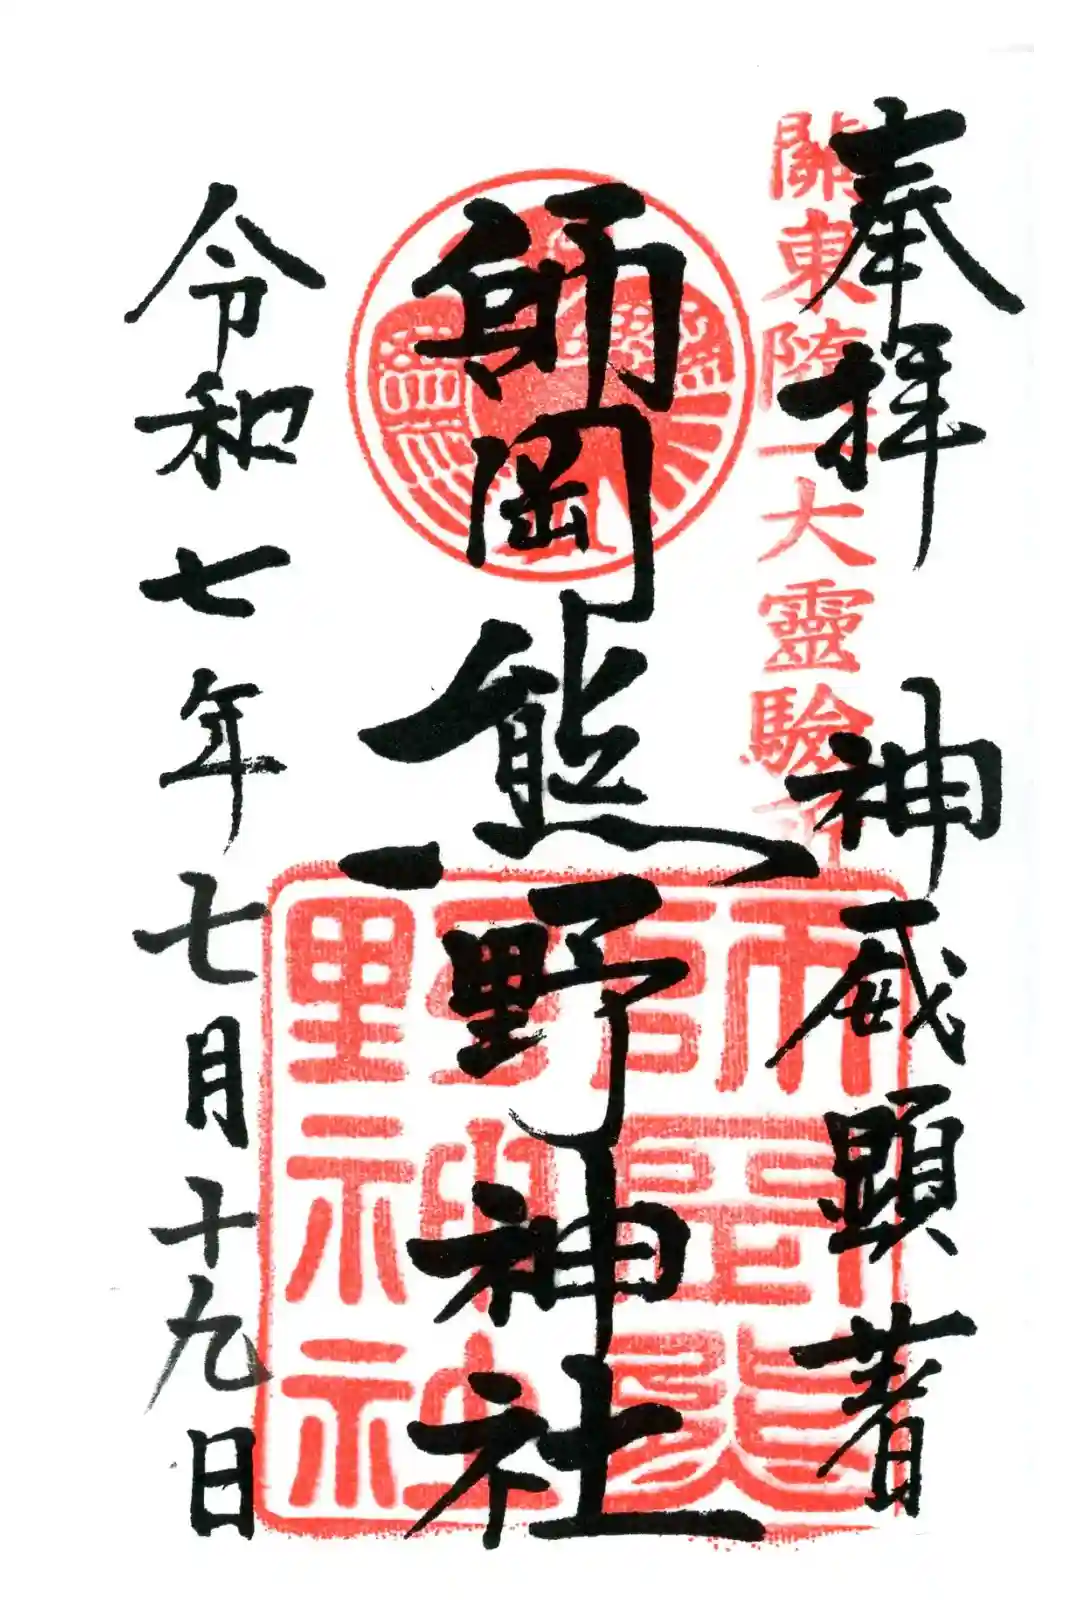 奉拝
關東随一大靈驗所
神威顕著
師岡熊野神社
師岡熊野神社
令和七年七月十九日